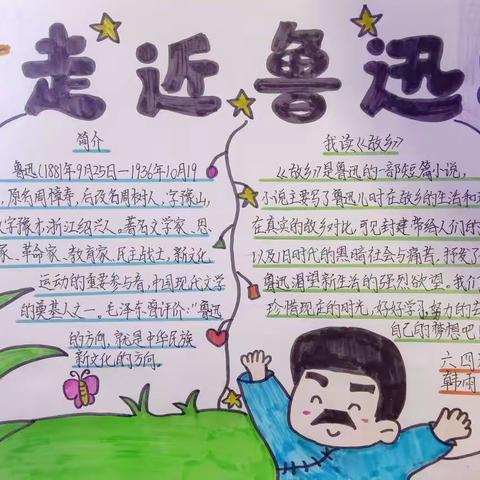 走近鲁迅
简介
鲁迅(1881年9月25日—1936年10月19
,原名周樟寿,后改名周树人,字豫山,
又字豫才,浙江绍兴人。著名文学家、思
家、革命家、教育家、民主战士,新文化
运动的重要参与者,中国现代文学
的奠基人之一。毛泽东曾评价:"鲁迅
的方向,就是中华民族
新文化的方向。
我读《故乡》
《故乡》是鲁迅的一部短篇小说。
小说主要写了鲁迅儿时在故乡的生活和
在真实的故乡对比,可见封建带给人们的
以及旧时代的黑暗社会与痛苦,抒发了
鲁迅渴望新生活的强烈欲望。我们
珍惜现在的时光,好好学习努力的去
自己的梦想吧
六四
韩雨